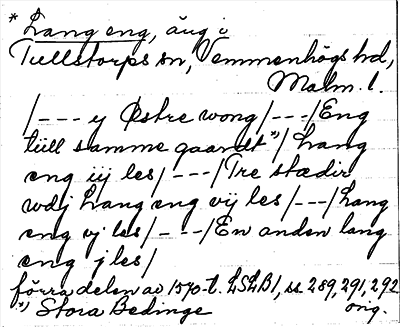 * Lang eng, äng i
Tullstorps sn, Vemmenhögs hd,
Malm. l.
/--- y Østre wong/---/Eng
tiill samme gaardt*)/Lang
eng iij les/---/Tre stædir
wdj Lang eng vij les/---/Lang
eng vj les/---/En anden lang
eng j les/
förra delen av 1570-t. LSLB1, ss. 289, 291, 292
*) Stora Bedinge orig.